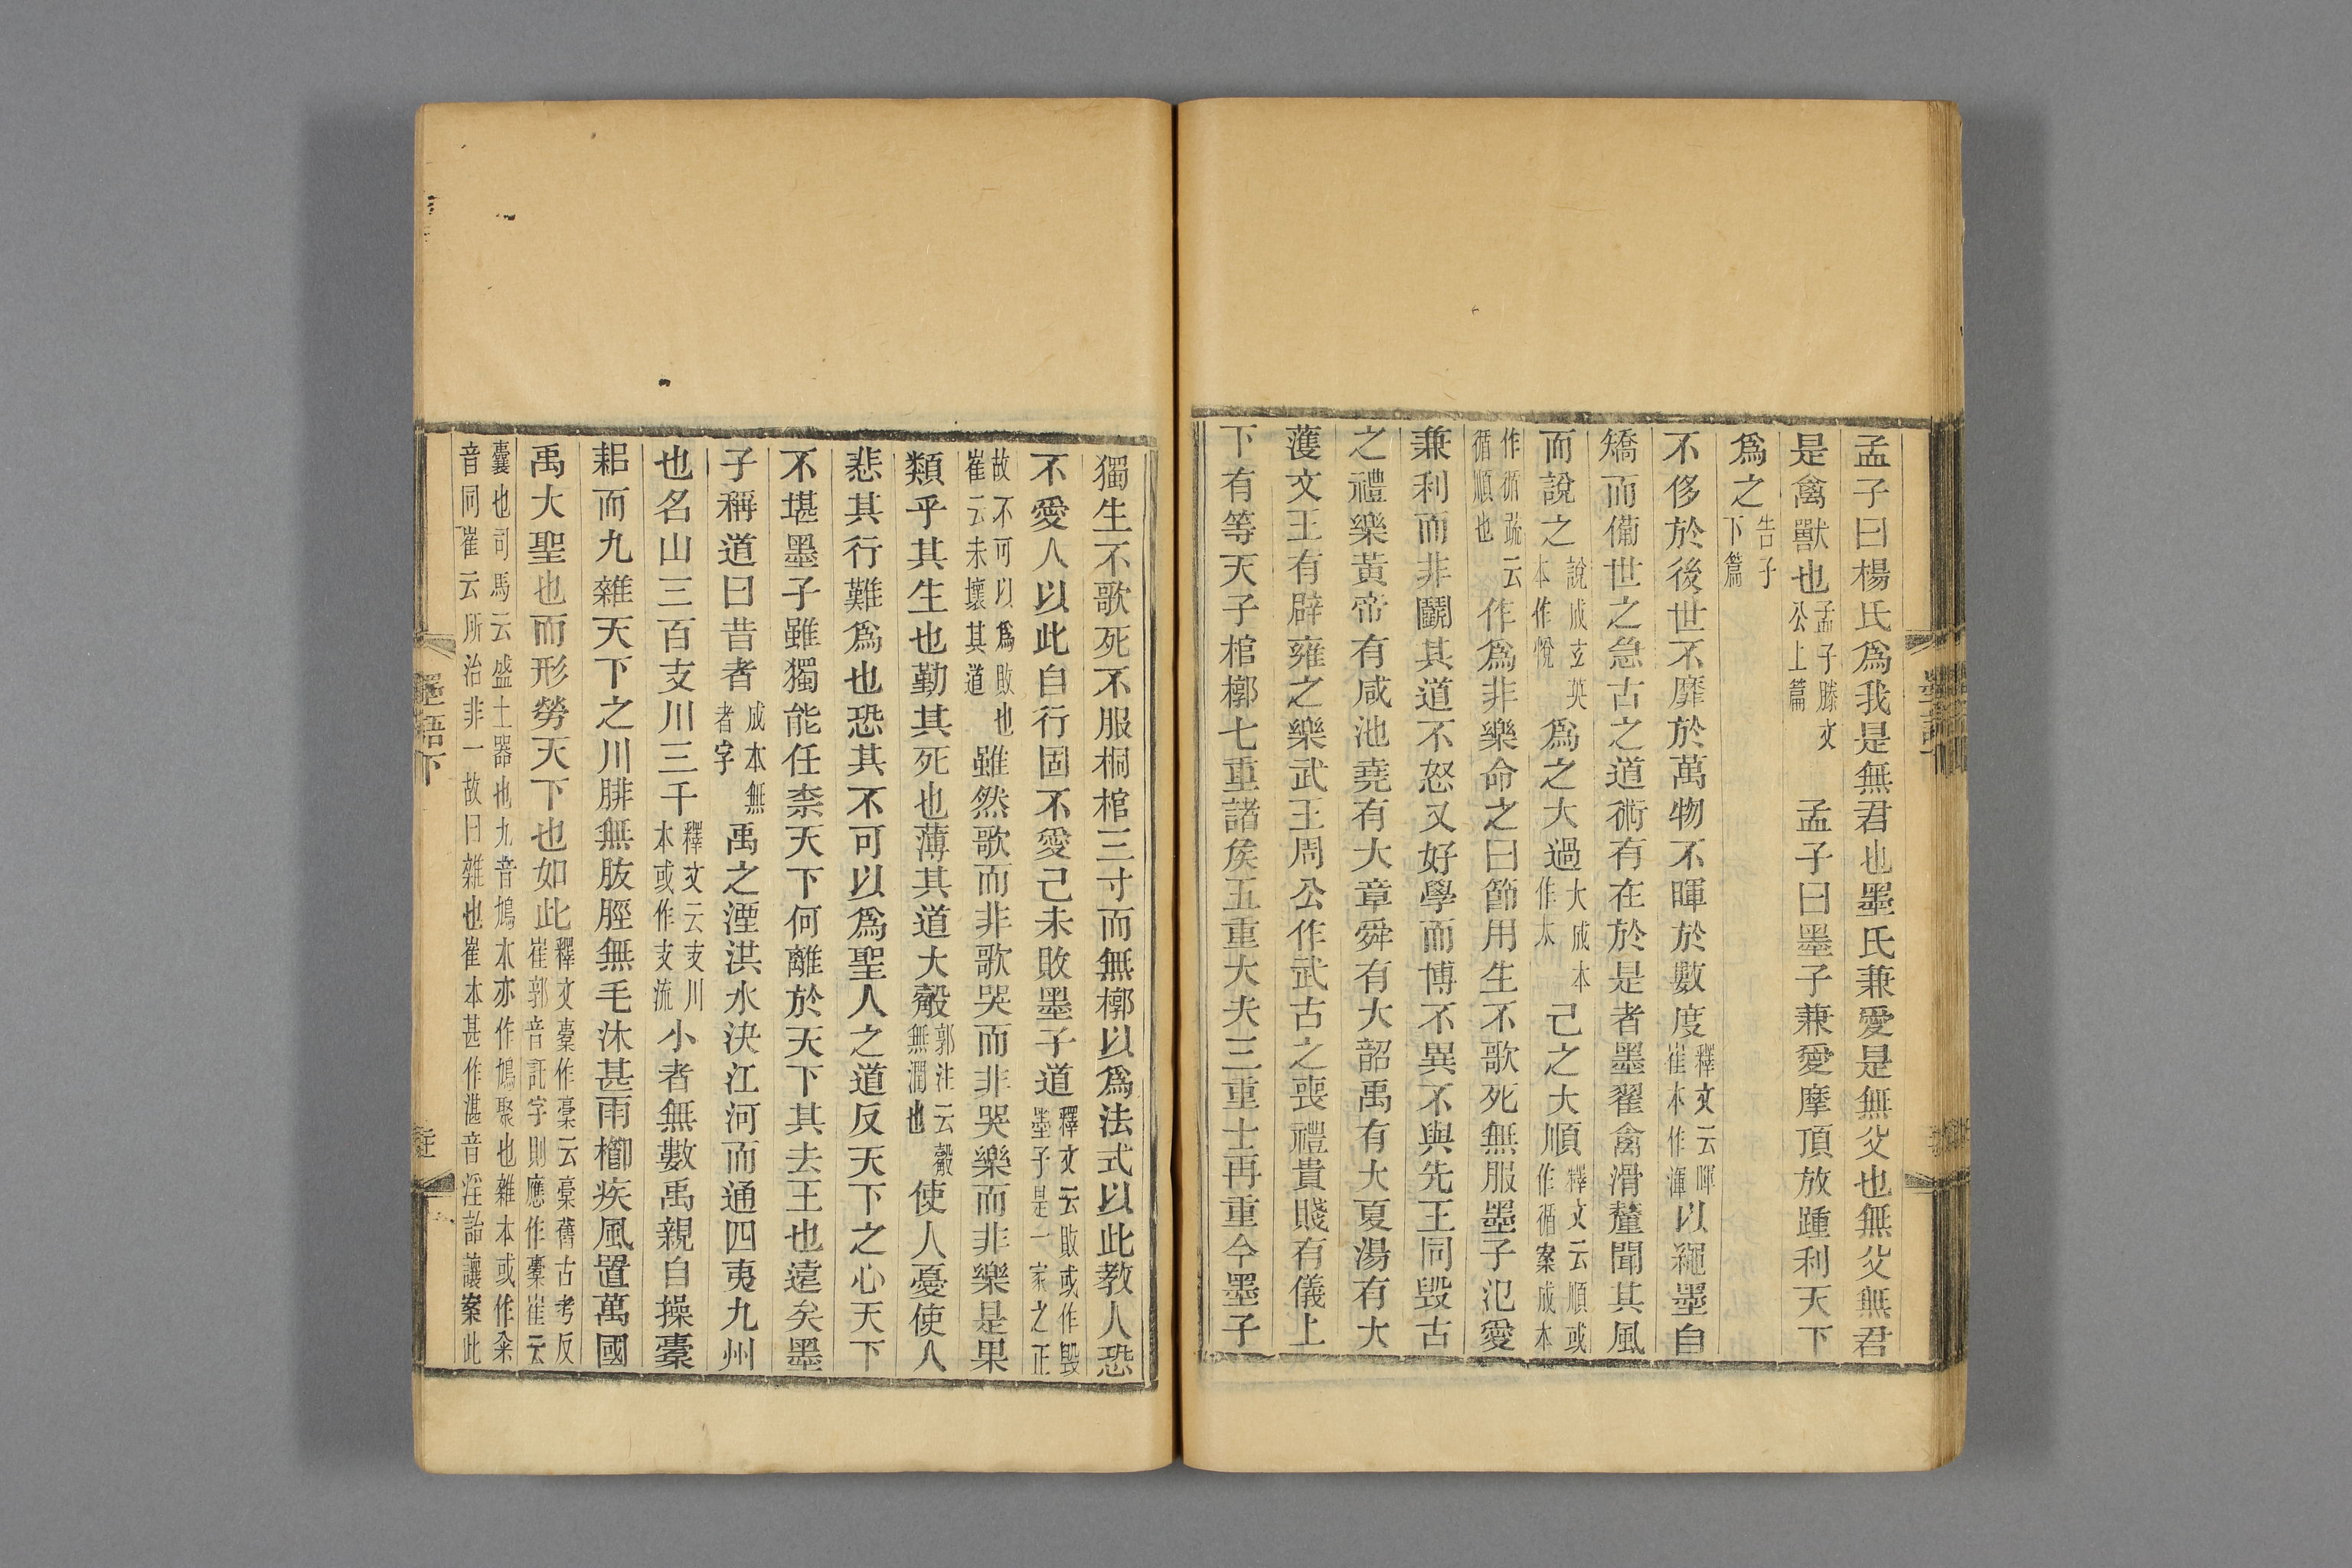 孟子曰楊氏爲我是無君也墨氏兼愛是無父也無父無君
是禽獸也孟子滕文公上篇　孟子曰墨子兼愛摩頂放踵利天下
爲之告子下篇
不侈於後世不靡於萬物不暉於數度釋文云暉崔本作渾以繩墨自
矯而備世之急古之道術有在於是者墨翟禽滑釐聞其風
而說之說成玄英本作悅爲之大過大成本作太己之大順釋文云順或作循案成本
作循疏云循順也作爲非樂命之曰節用生不歌死無服墨子氾愛
兼利而非鬭其道不怒又好學而博不異不與先王同毀古
之禮樂黃帝有咸池堯有大章舜有大韶禹有大夏湯有大
濩文王有辟雍之樂武王周公作武古之喪禮貴賤有儀上
下有等天子棺槨七重諸矦五重大夫三重士再重今墨子
獨生不歌死不服桐棺三寸而無槨以爲法式以此教人恐
不愛人以此自行固不愛己未敗墨子道釋文云敗或作毀墨子是一家之正
故不可以爲敗也崔云未壞其道雖然歌而非歌哭而非哭樂而非樂是果
類乎其生也勤其死也薄其道大觳郭注云觳無潤也使人憂使人
悲其行難爲也恐其不可以爲聖人之道反天下之心天下
不堪墨子雖獨能任柰天下何離於天下其去王也遠矣墨
子稱道曰昔者成本無者字禹之湮洪水決江河而通四夷九州
也名山三百支川三千釋文云支川本或作支流小者無數禹親自操橐
耜而九雜天下之川腓無胈脛無毛沐甚雨櫛疾風置萬國
禹大聖也而形勞天下也如此釋文橐作槖云槖舊古考反崔郭音託字則應作橐崔云
囊也司馬云盛土器也九音鳩本亦作鳩聚也雜本或作籴音同崔云所治非一故曰雜也崔本甚作湛音淫詒讓案此
墨語下